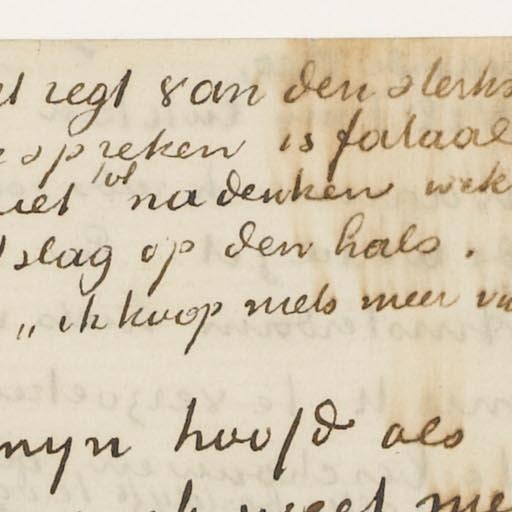 regt van den sterks
spreken is fataal
niet tot nadenken wek
slag op den hals.
„ik koop niets meer va
myn hoofd als
ik weet me